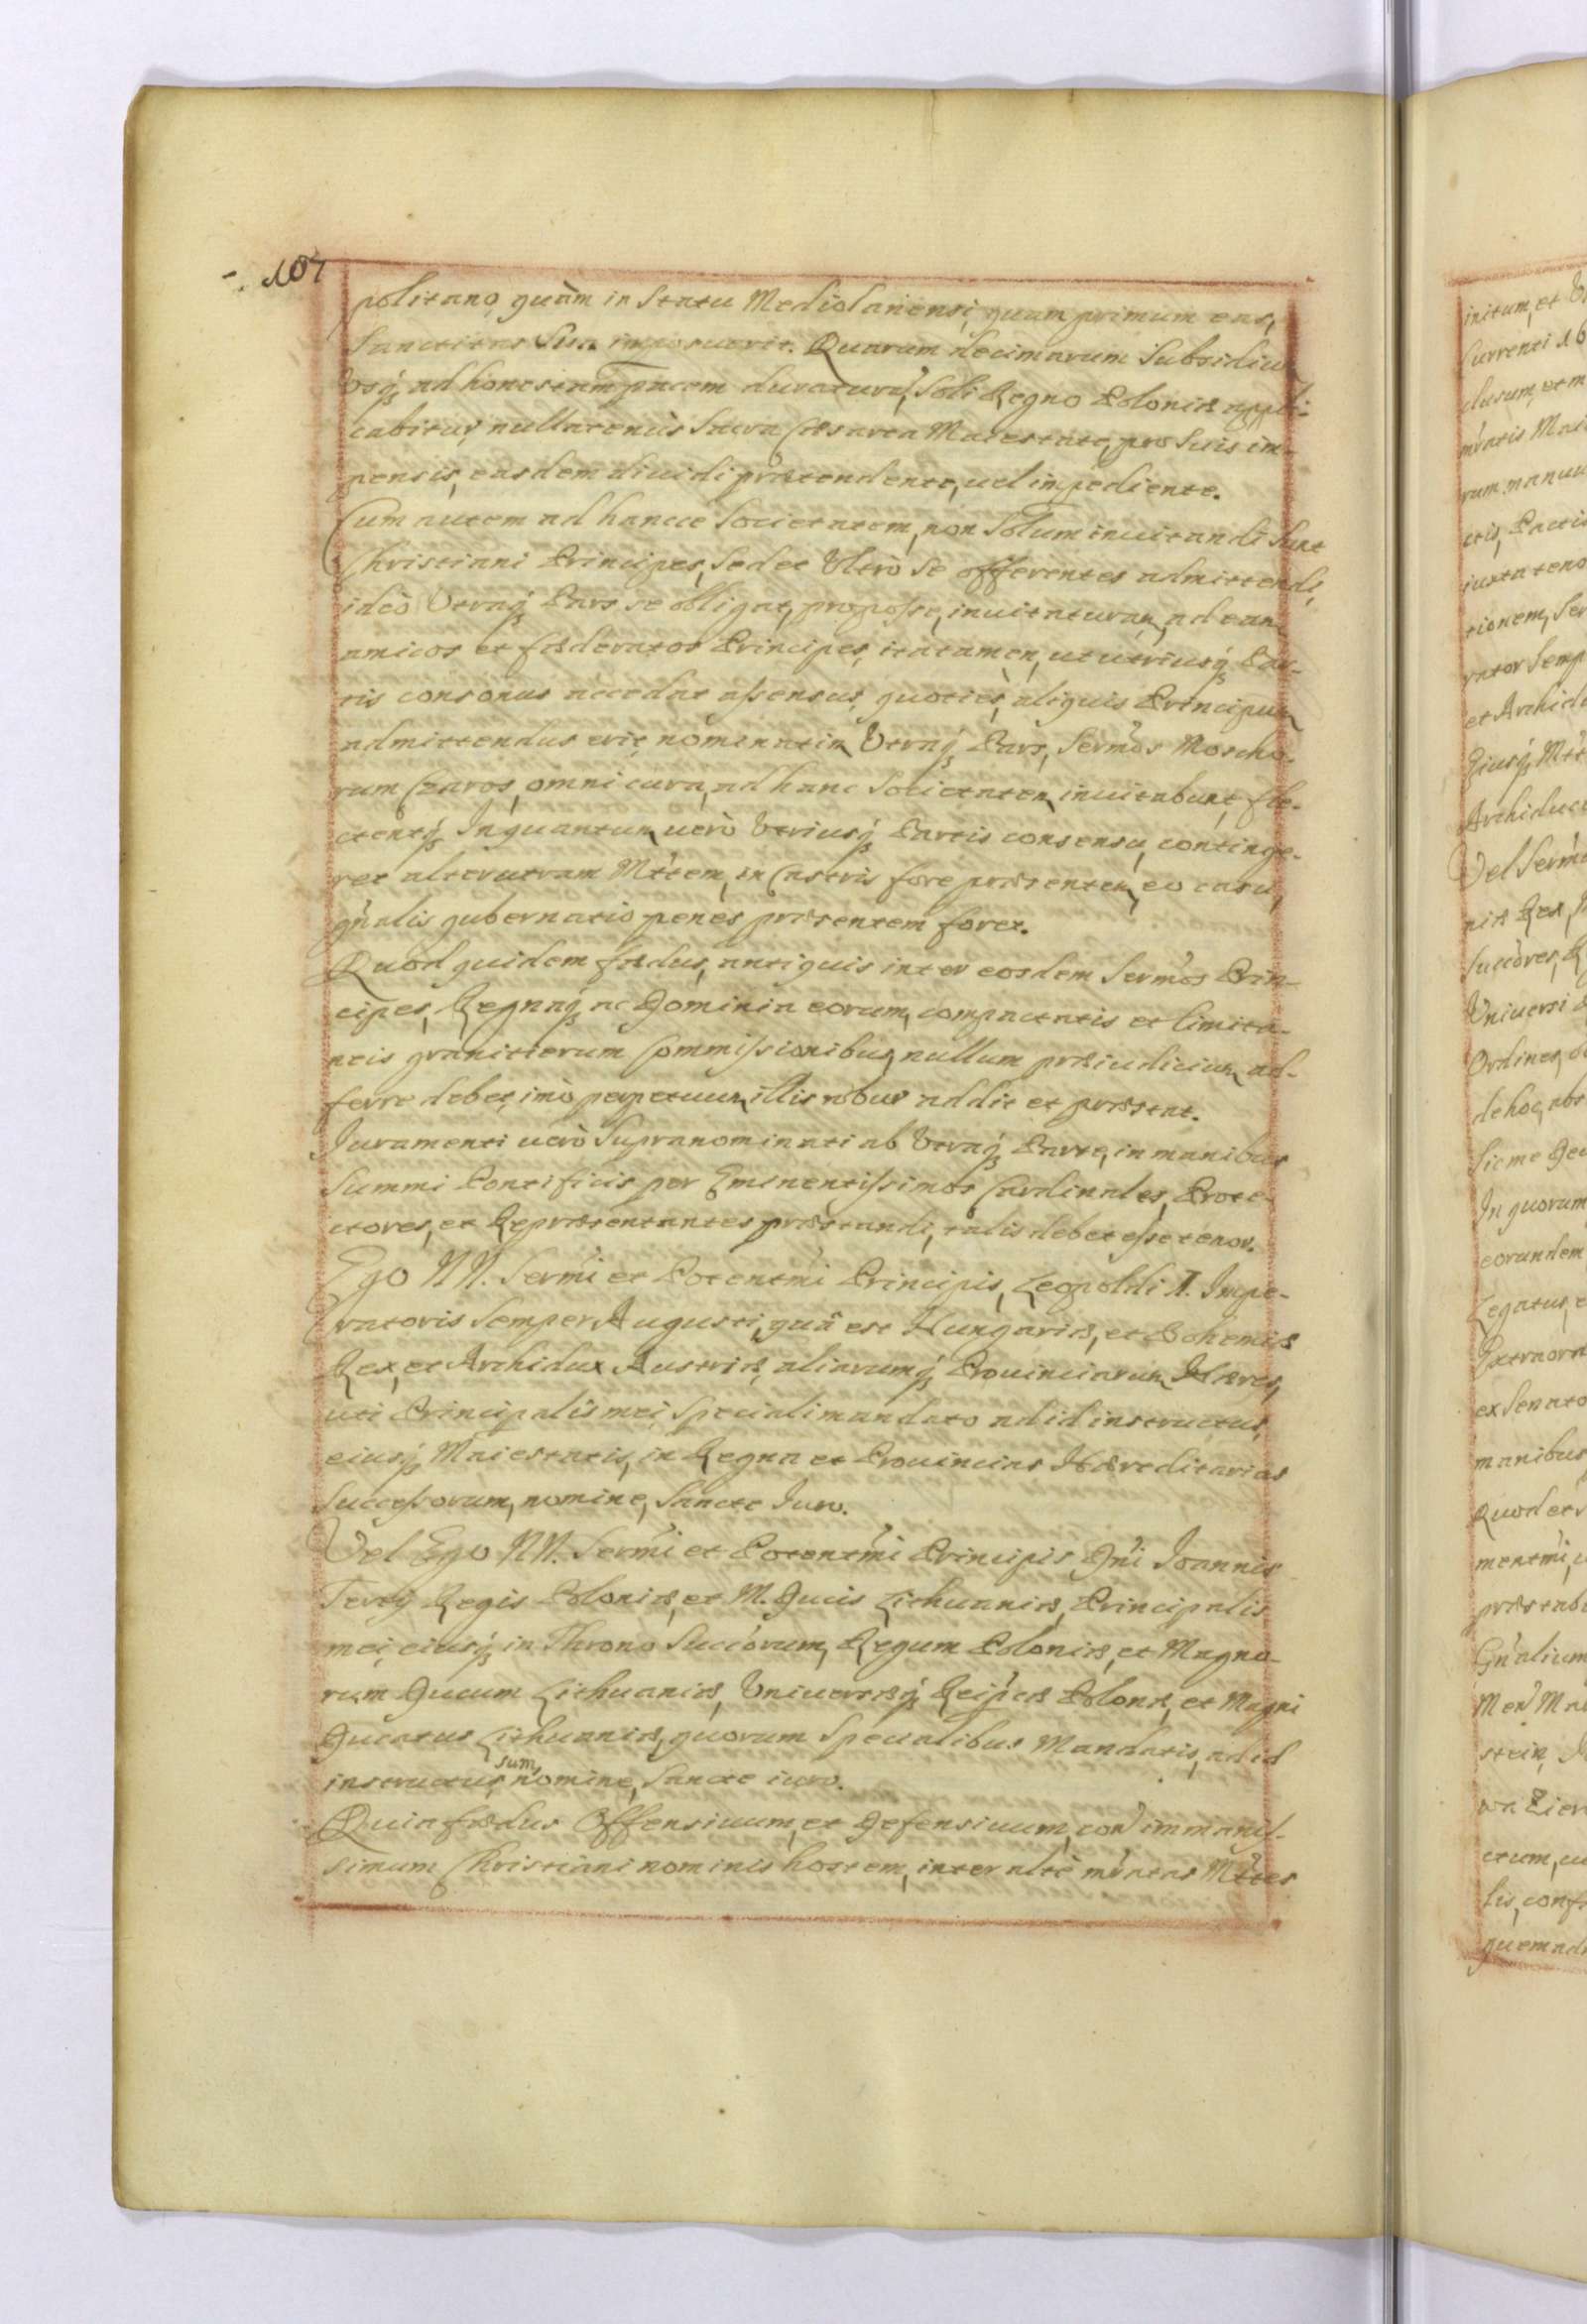 107
politano, quàm in Statu Mediolanensi, quam primum eas,
Sanctitas Sua imposuerit. Quarum decimarum Subsidium
Vsq; ad honestam pacem duraturũ, Soli Regno Poloniæ appli-
cabitur, nullatenùs Sacra Cæsarea Maiestate, pro Suis im-
pensis, easdem diuidi prætendente, uel impediente.
Cum autem ad hancce Societatem, non Solum inuitandi Sunt
Christiani Principes, Sed et Vltrò Se offerentes admittendi,
ideò Vtraq; Pars se obligat, pro posse, inuitaturam, ad eam
amicos et fæderatos Principes, ita tamen, ut utriusq; Par-
tis consonus accedat assensus, quoties, aliquis Principum
admittendus erit, nominatim Vtraq; Pars, Sermos Moscho-
rum Czaros, omni cura, ad hanc Societatem inuitabunt, fle-
ctentq; Inquantum uerò Vtriusq; Partis consensu, continge-
ret alterutram Mttem, in Castris fore præsentem, eo casu,
gñalis gubernatio penes præsentem foret.
Quod quidem fædus, antiquis inter eosdem Sermos Prin-
cipes, Regnaq; ac Dominia eorum, compactatis et limita-
neis granitierum Commissionibus, nullum præiudicium ad-
ferre debet, imò perpetuum illis robur addit et præstat.
Juramenti uerò Supranominati ab Vtraq; Parte, in manibus
Summi Pontificis per Eminentissimos Cardinales, Prote-
ctores, et Repræsentantes præstandi, talis debet esse tenor.
Ego NN. Sermi et Potentmi Principis, Leopoldi I. Impe-
ratoris Semper Augusti, quâ est Hungariæ, et Bohemiæ
Rex, et Archidux Austriæ, aliarumq; Prouinciarum Hæres,
uti Principalis mei, Speciali mandato ad id instructus,
eiusq; Maiestatis, in Regna et Prouincias Hæreditarias
Successorum, nomine, Sancte Juro.
Vel Ego NN. Sermi et Potentmi Principis Dñi Joannis
Tertij Regis Poloniæ, et M. Ducis Lithuaniæ, Principalis
mei, eiusq; in Throno Succorum, Regum Poloniæ, et Magno-
rum Ducum Lithuaniæ, Vniuersæq; Reipcæ Polonæ, et Magni
Ducatus Lithuaniæ, quorum Specialibus Mandatis, ad id
instructus sum, nomine, Sancte iuro.
Quia fædus Offensiuum, et Defensiuum, con immanis-
simum Christiani nominis hostem, inter altè mratas Mttes